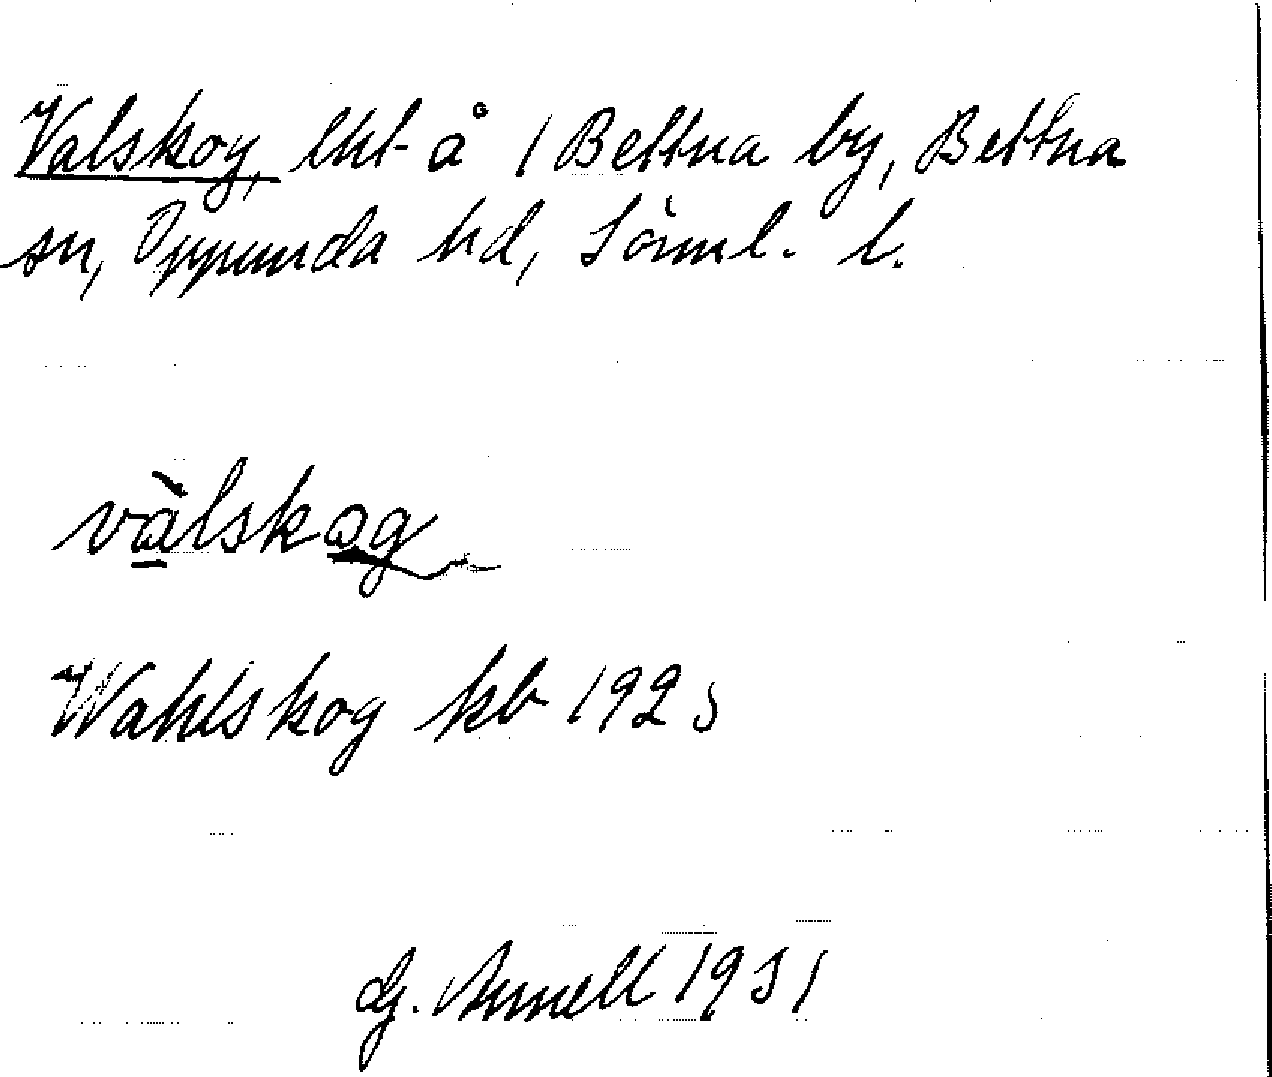 Valskog, lht å 1 Bettna by, Bettna
sn, Oppunda hd, Sörml. l.
vàlskog
Wahlskog kb 1925
G. Annell 1931